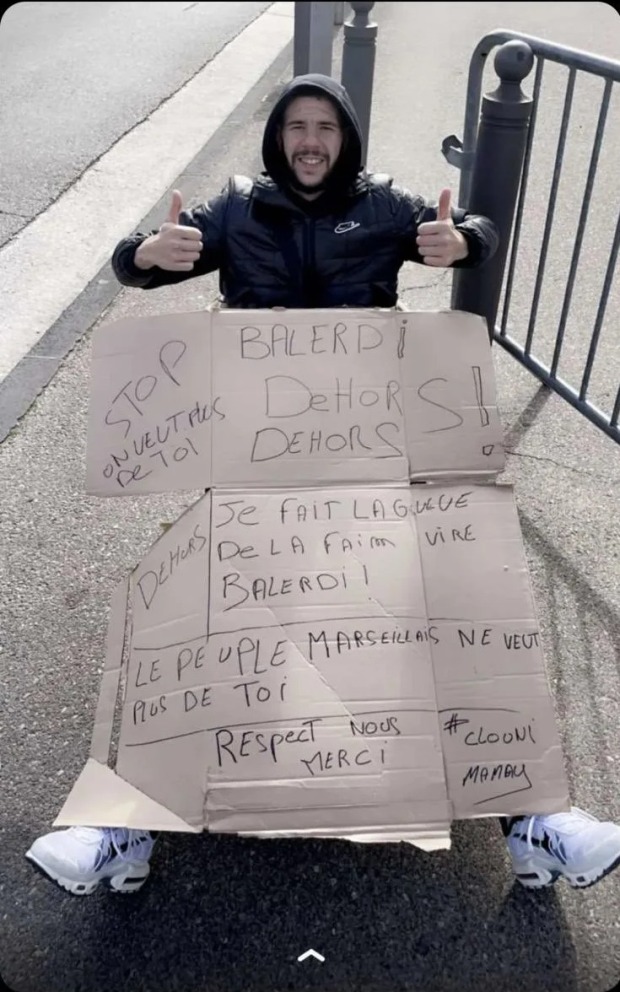 STOP
ON VEUT PLUS
DE TOI
BALERDi
DeHORS!
DEHORS
DEHORS
Je FAIT LA GUEUE
De LA FAim VIRE
BALERDI!
LE PEUPLE MARSEILLAIS NE VEUT
PLUS DE TOi
RESpecT NOUS
MERCi
#CLOUNi
MAMAY